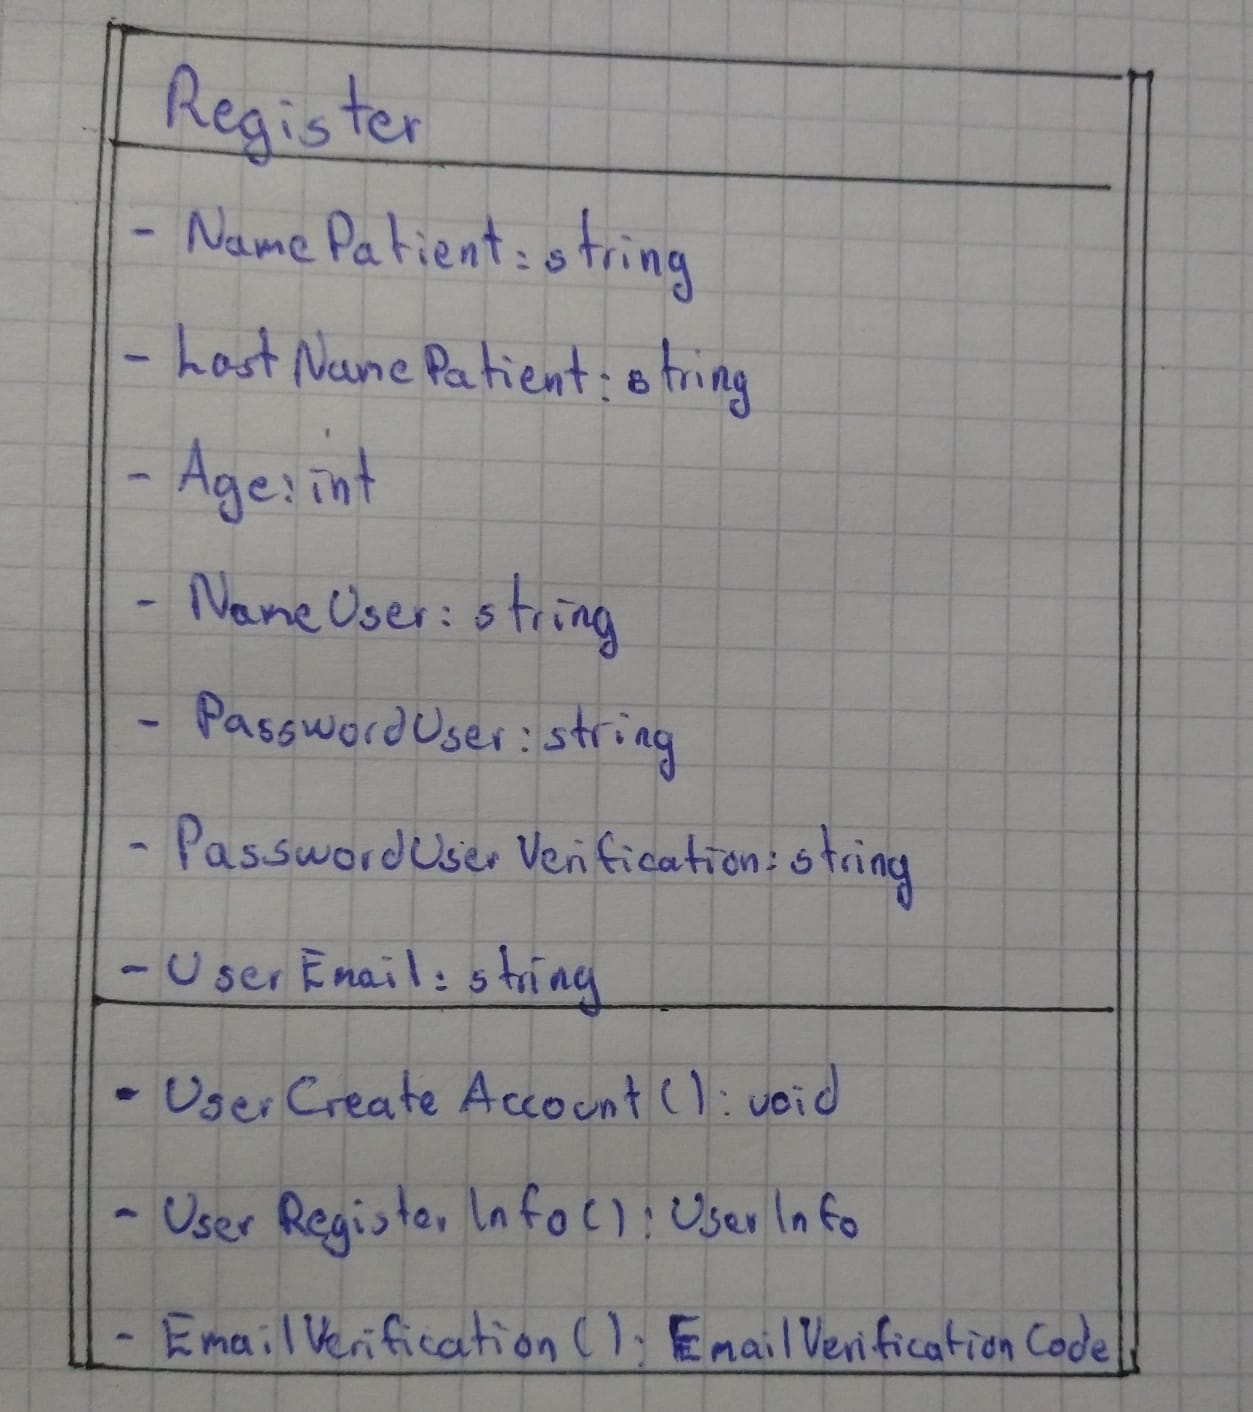 Register
- NamePatient: string
- LastNamePatient: string
- Age: int
- NameUser: string
- PasswordUser: string
- PasswordUserVerification: string
- UserEmail: string
- UserCreateAccount(): void
- UserRegisterInfo(): UserInfo
- EmailVerification(): EmailVerificationCode